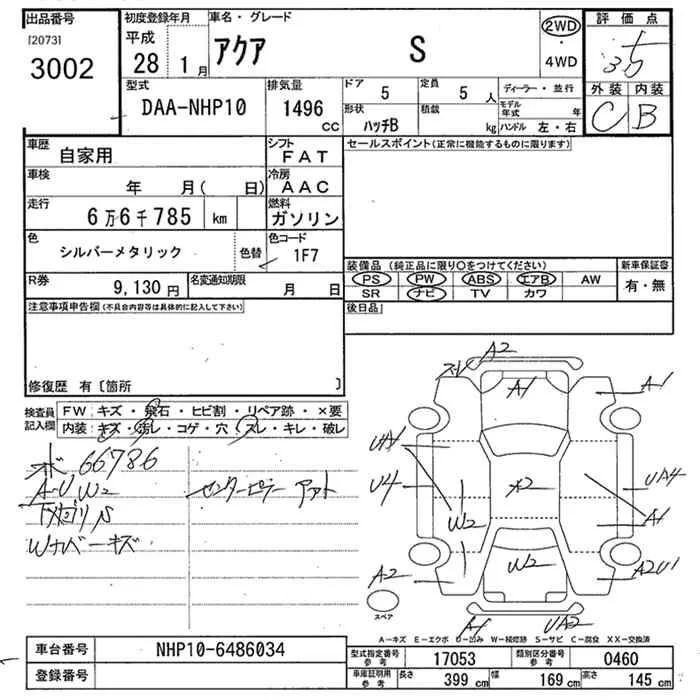 出品番号
[2073]
3002
初度登録年月
平成
28 1月
車名・グレード
アクア S
2WD
・
4WD
評価点
外装 内装
C B
型式
DAA-NHP10
排気量
1496
CC
ドア
5
定員
5人
ディーラー・並行
形状
ハッチB
積載
kg
モデル年式 年
ハンドル 左・右
車歴
自家用
シフト
FAT
車検
年 月( 日)
冷房
AAC
走行
6万6千785 km
燃料
ガソリン
色
シルバーメタリック
色替
色コード
1F7
R券
9,130円
名変通知期限
月 日
セールスポイント(正常に機能するものに限ります)
装備品(純正品に限り○をつけてください)
新車保証書
PS PW ABS エアB AW
有・無
SR ナビ TV カワ
後日品
注意事項申告欄(不具合内容等は具体的に記入して下さい)
修復歴 有〔箇所 〕
検査員記入欄
FW:キズ・飛石・ヒビ割・リペア跡・×要
内装:キズ・汚レ・コゲ・穴・スレ・キレ・破レ
ボ 66786
A-U W2
センターピラー アアト
下メゴリS
Wカバーキズ
A2
スレ
A1
A1
UA1
U4
UA4
×2
A1
W2
W2
A2
A2U1
スペア
A1
UA2
A-キズ E-エクボ U-凹み W-補修跡 S-サビ C-腐食 XX-交換済
車台番号
NHP10-6486034
登録番号
型式指定番号
参考
17053
類別区分番号
参考
0460
車庫証明用
参考
長さ
399 cm
幅
169 cm
高さ
145 cm